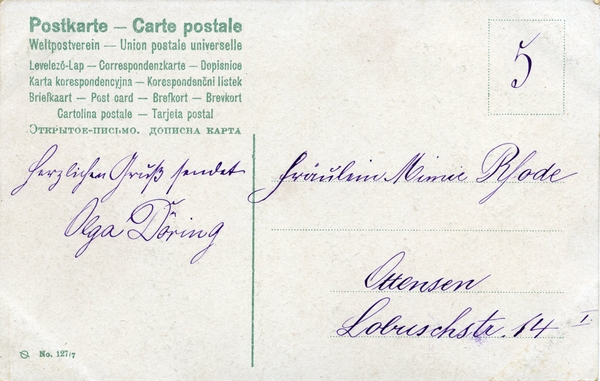 Postkarte — Carte postale
Weltpostverein — Union postale universelle
Levelező-Lap — Correspondenzkarte — Dopisnice
Karta korespondencyjna — Korespondenční lístek
Briefkaart — Post card — Brefkort — Brevkort
Cartolina postale — Tarjeta postal
Открытое-письмо. дописна карта
5
Herzlichen Gruß sendet
Olga Döring
Fräulein Mimie Rhode
Ottensen
Lobuschstr. 14 I.
No. 127/7